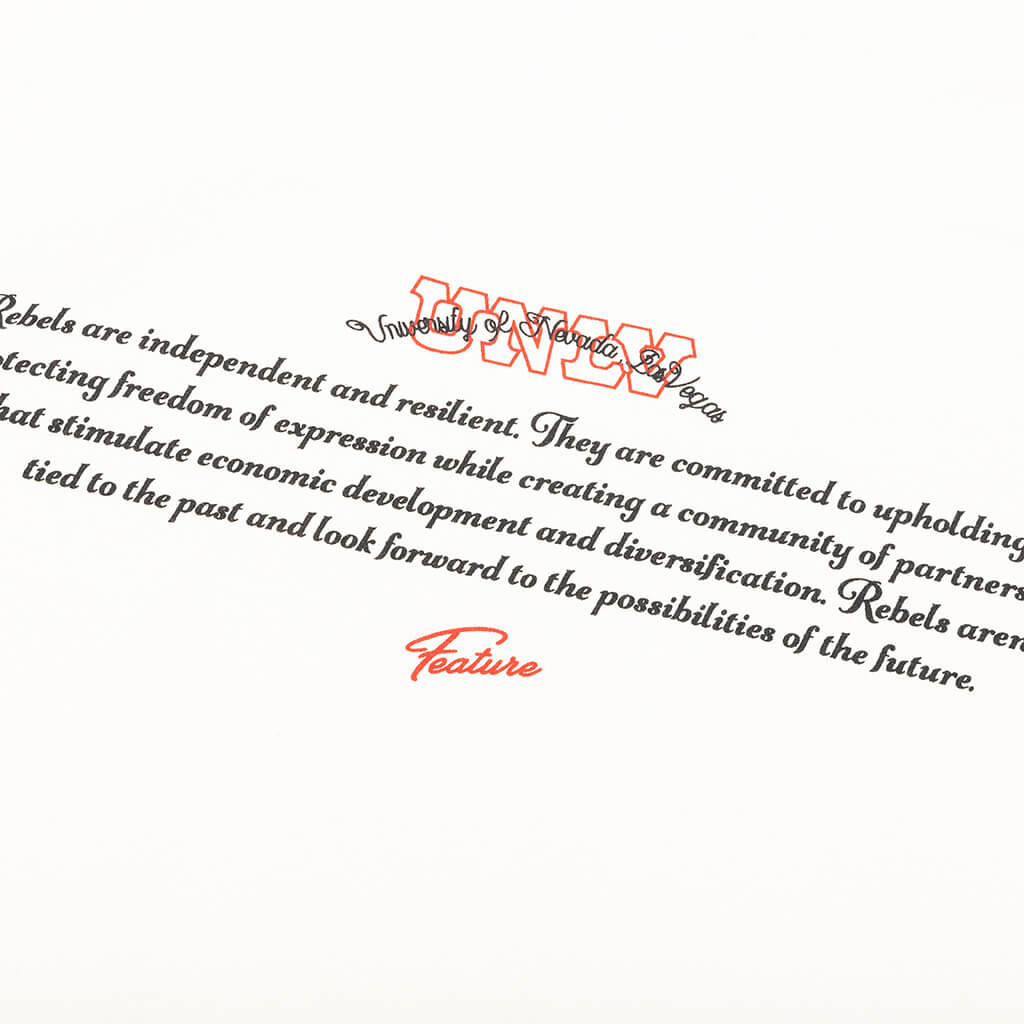 UNLV
University of Nevada, Las Vegas
Rebels are independent and resilient. They are committed to upholding
freedom of expression while creating a community of partners
stimulate economic development and diversification. Rebels
tied to the past and look forward to the possibilities of the future.
Feature